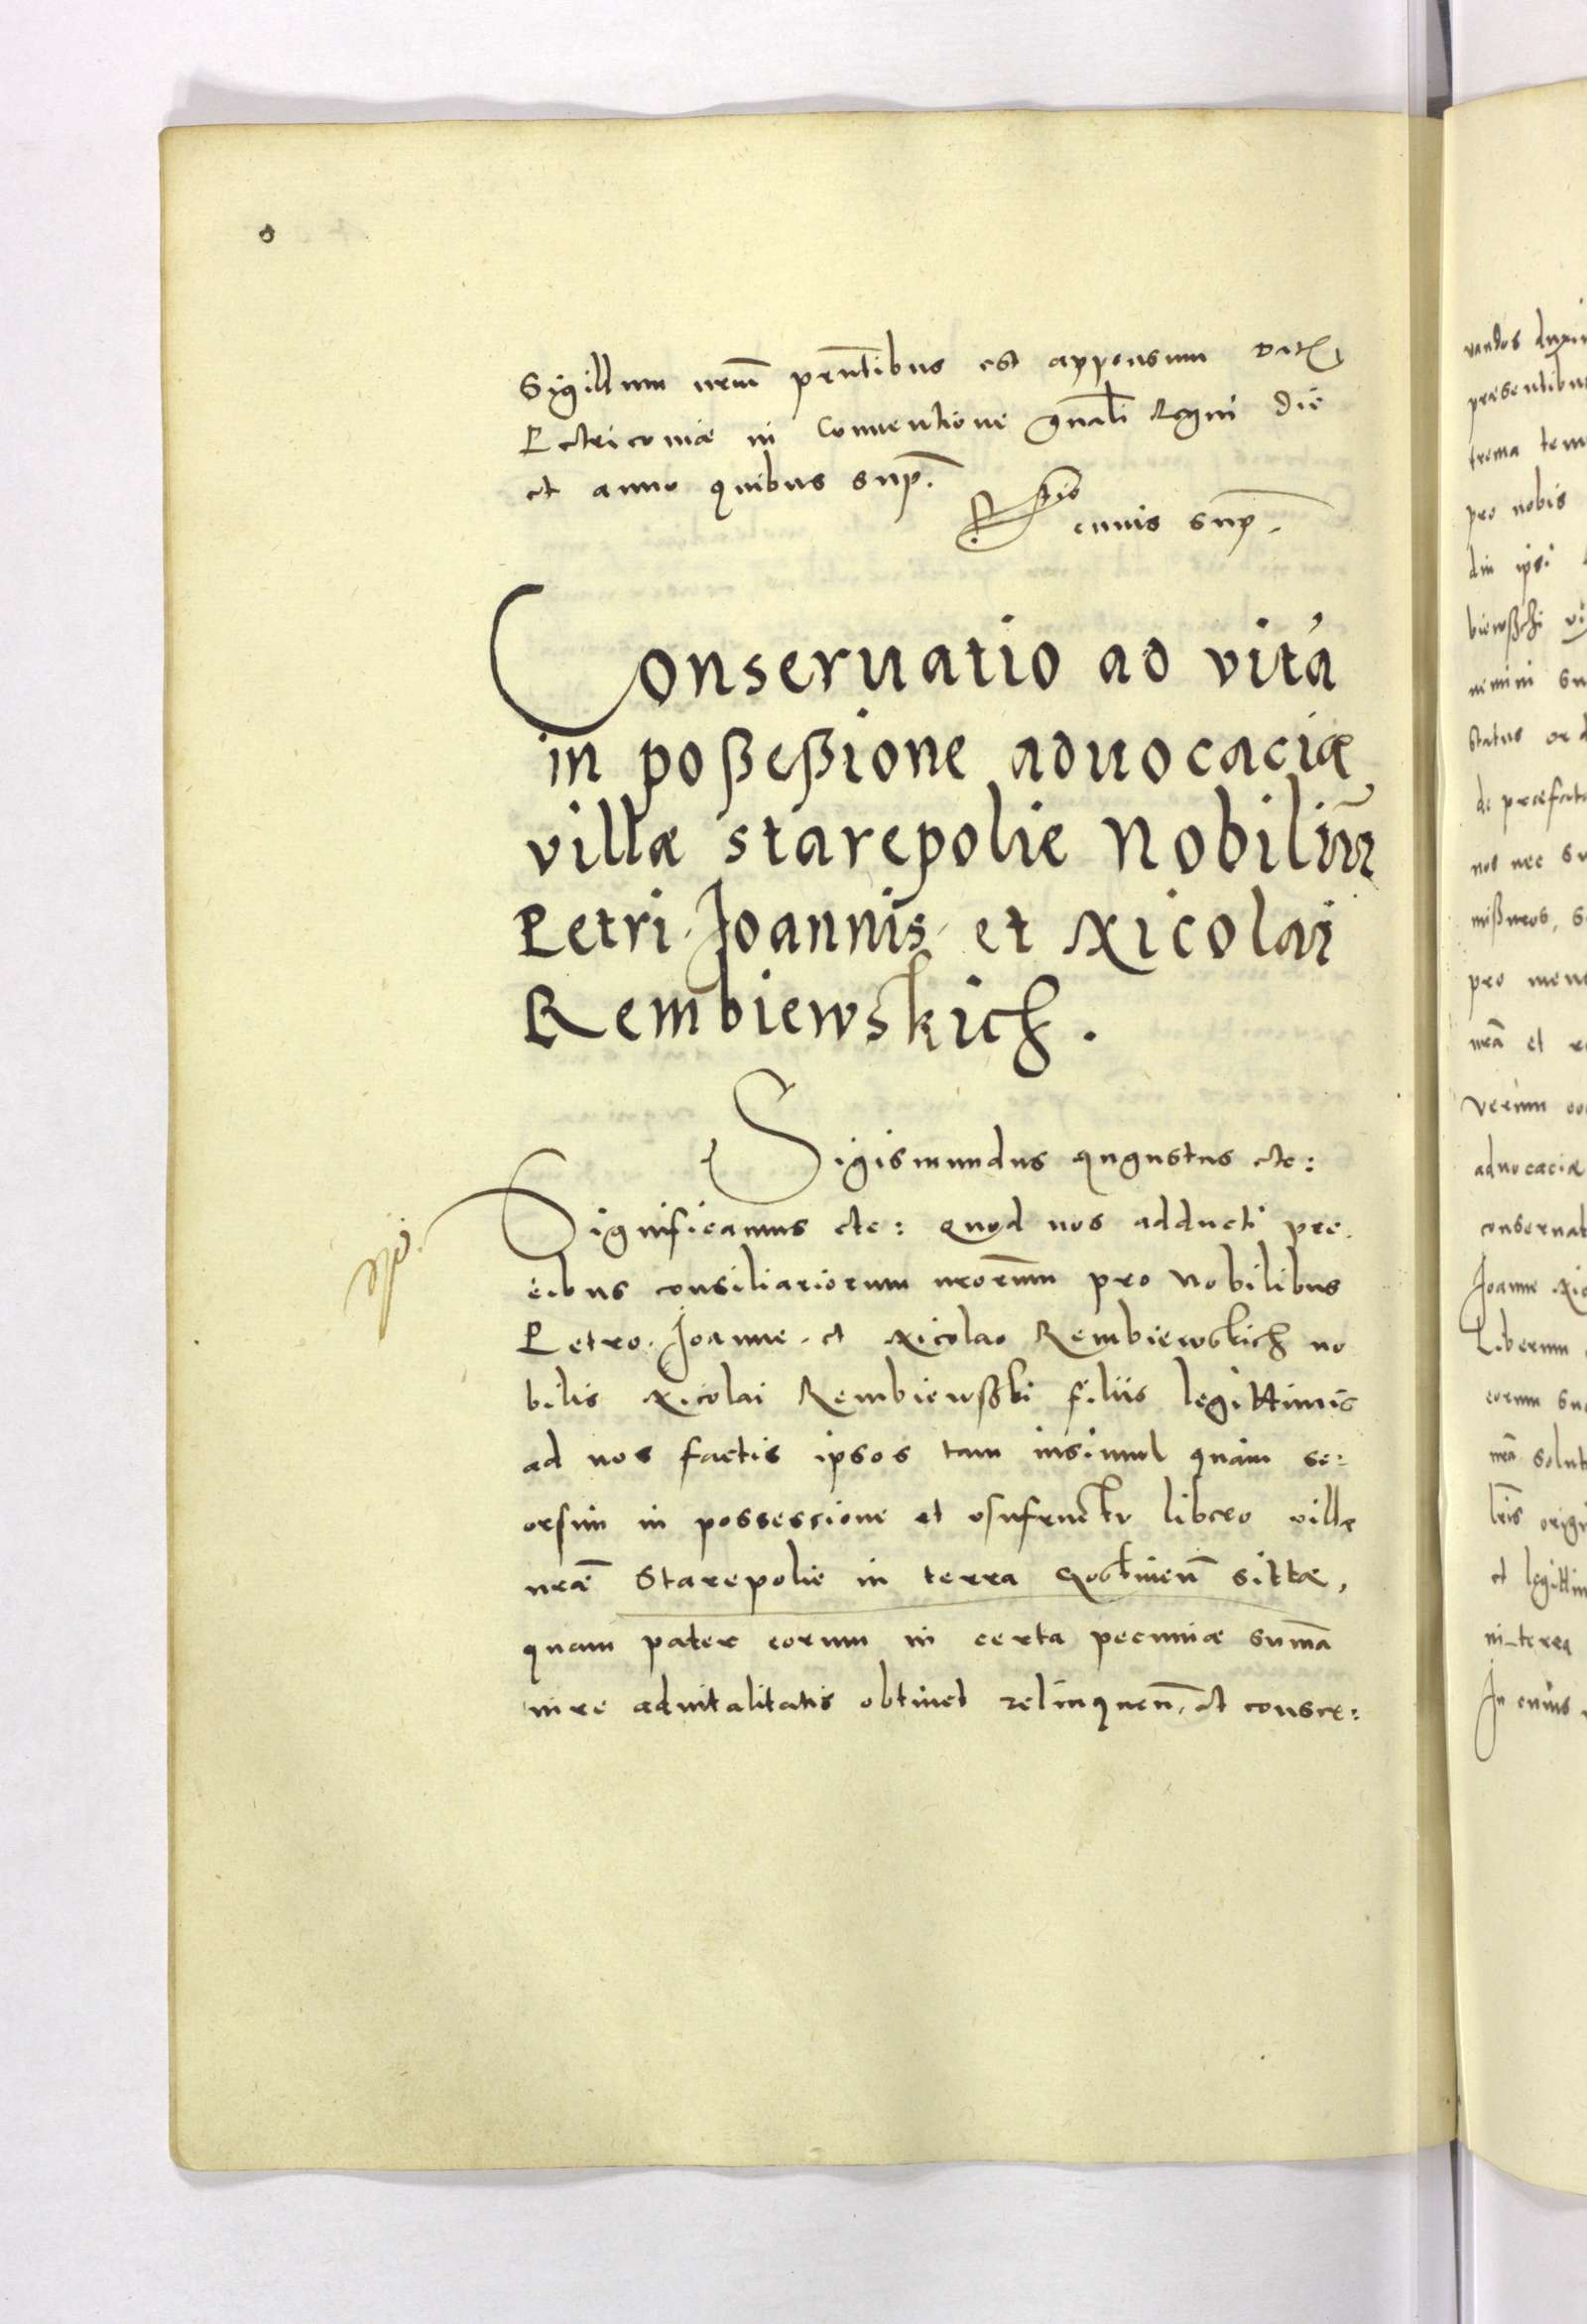 Sigillum nrum pntibus est appensum Dat
Petricouiæ in Conuentione gnali Regni die
et anno quibus supᷓ.
Rtio
cuius supᷓ.
Conseruatio ad vitā
in poßeßione aduocaciæ
villæ starepolie Nobiliū
Petri. Joannis. et Nicolai
Rembiewskich.
Sigismundus Augustus etc:
Significamus etc: Quod nos adducti pre.
cibus consiliariorum nrorum pro Nobilibus
Petro. Joanne. et Nicolao Rembiewskich no
bilis Nicolai Rembiewßki filiis legittimis
ad nos factis ipsos tam insimul quàm se:
orsim in possessione et vsufructu libero villæ
nræ Starepolie in terra Gostinen sittæ,
quam pater eorum in certa pecuniæ summa
iure aduitalitatis obtinet relinquen. et conser:
vandos
præsentibus
pro nobis
ipsi
nemini
Status
de præfata
nos nec
pro
nrā et
verum
aduocaciæ
conseruat
Joanne
Liberum
eorum
nrā solut
origi
et legittim
in terra
In cuius